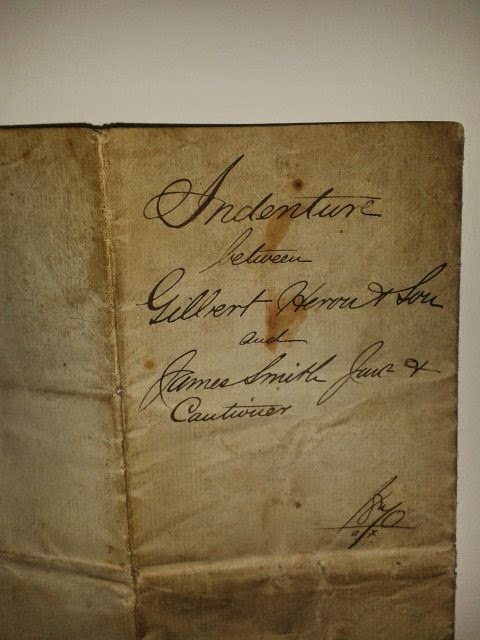 Indenture
between
Gilbert Heron & Son
and
James Smith Junr &
Cautioner